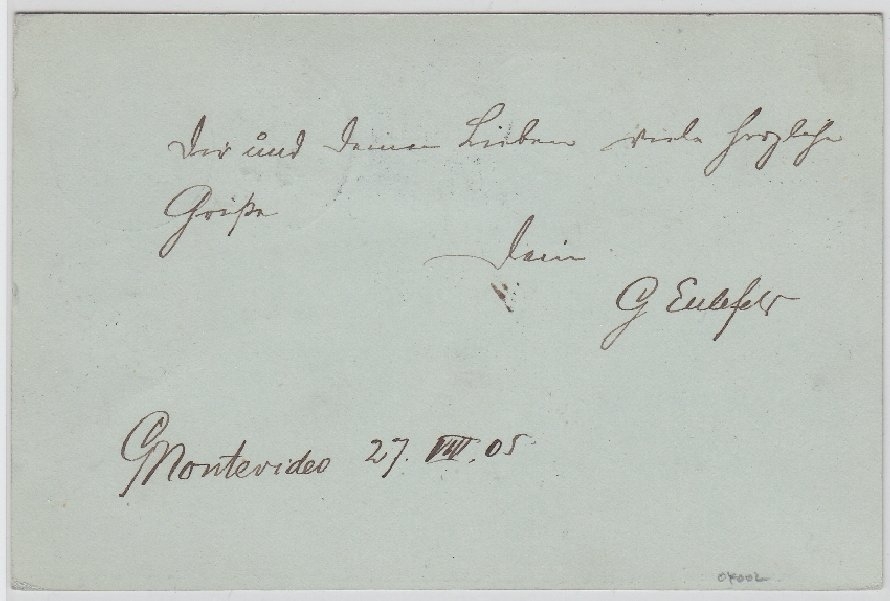 Dir und Deinen Lieben viele herzliche
Grüße
Dein
G Eulefeld
Montevideo 27. VIII. 05
04002